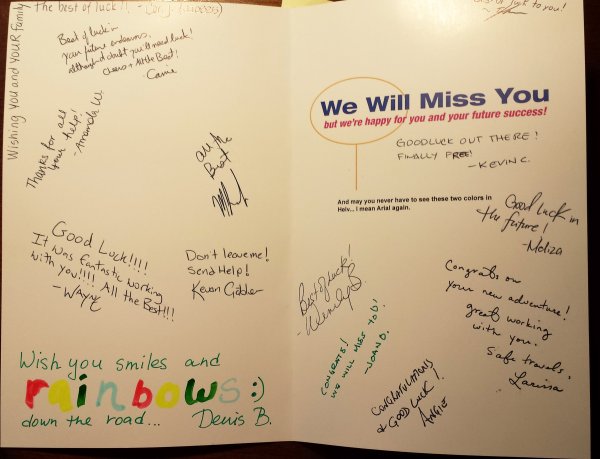 Wishing YOU and YOUR family
the best of luck!!
Best of luck in
your future endeavors,
although I doubt you'll need luck!
Cheers + All the Best!
- Carrie
Thanks for all
your help!
- Amanda W.
All the
Best
Good Luck!!!!
It was fantastic working
with you!!!! All the Best!!!
- WAYNE
Don't leave me!
Send Help!
Wish you smiles and
rainbows :)
down the road... Denis B.
of luck to you!
We Will Miss You
but we're happy for you and your future success!
GOODLUCK OUT THERE!
FINALLY FREE!
- KEVIN C.
And may you never have to see these two colors in
Helv... I mean Arial again.
Good Luck in
the future!
- Meliza
Best of Luck!
- Wendy B
CONGRATS!
WE WILL MISS YOU!
- JOAN D.
Congrats on
your new adventure!
great working
with you.
Safe travels,
Larissa
CONGRATULATIONS
& GOOD LUCK!
ANGIE